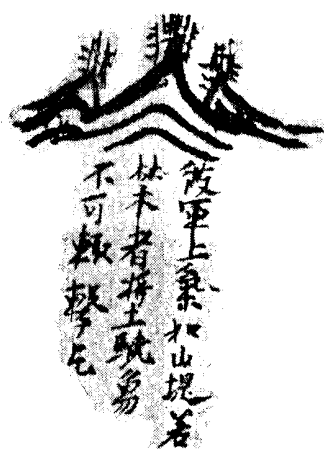 敵軍上氣如山堤若
林木者將士驍勇
不可輒擊之